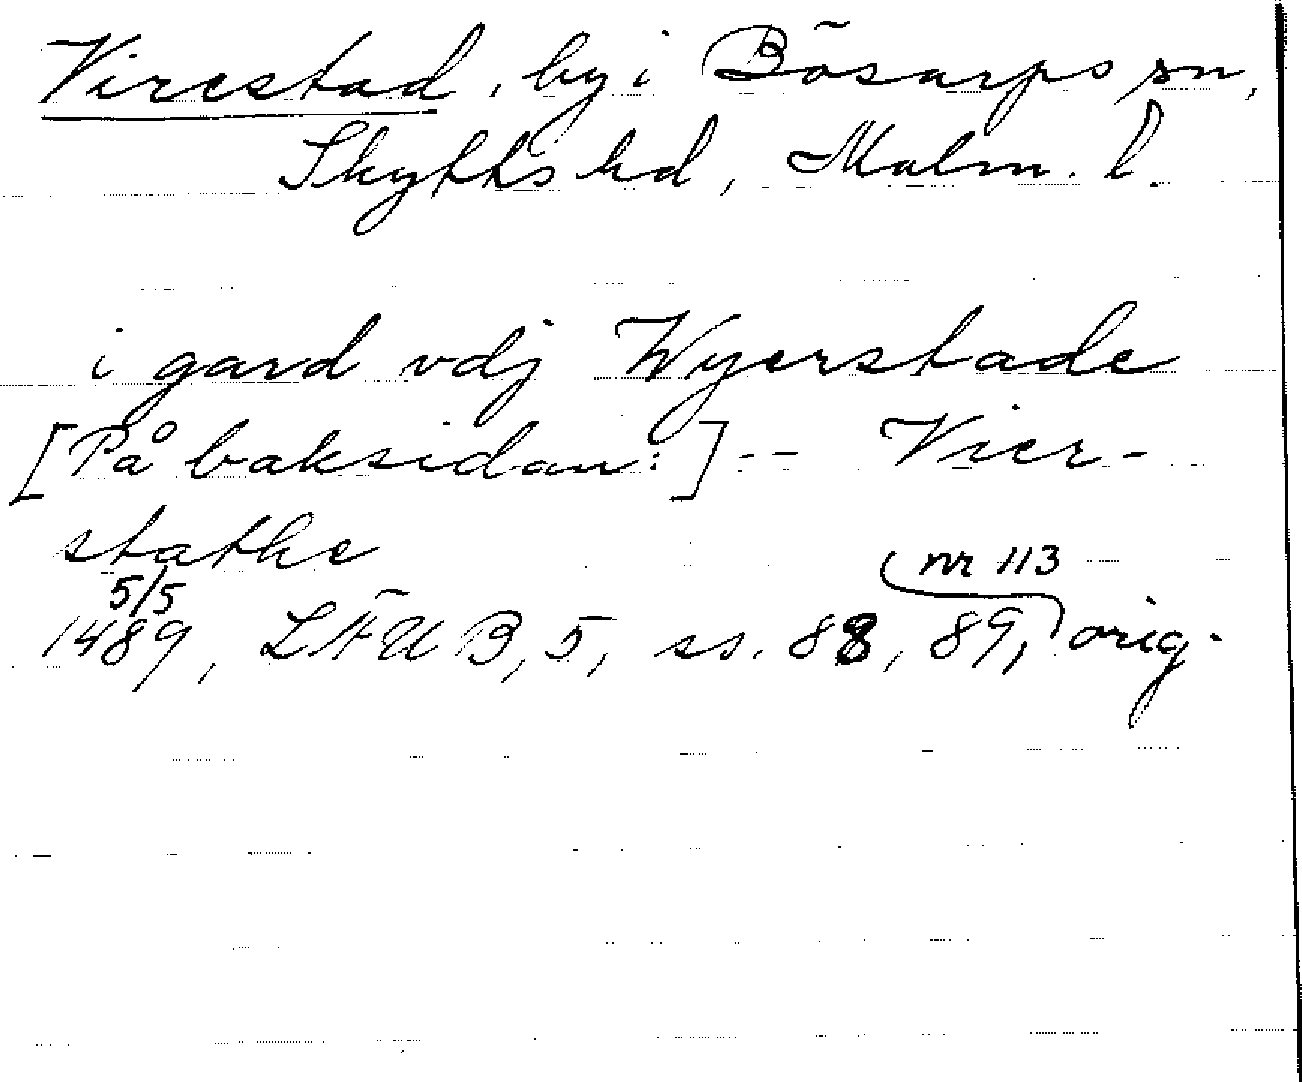 Virestad, by i Bösarps sn,
Skytts hd, Malm. l.
i gard vdj Wyerstade
[På baksidan:] -- Vier-
stathe
5/5 nr 113
1489, LÄUB, 5, ss. 88, 89, orig.